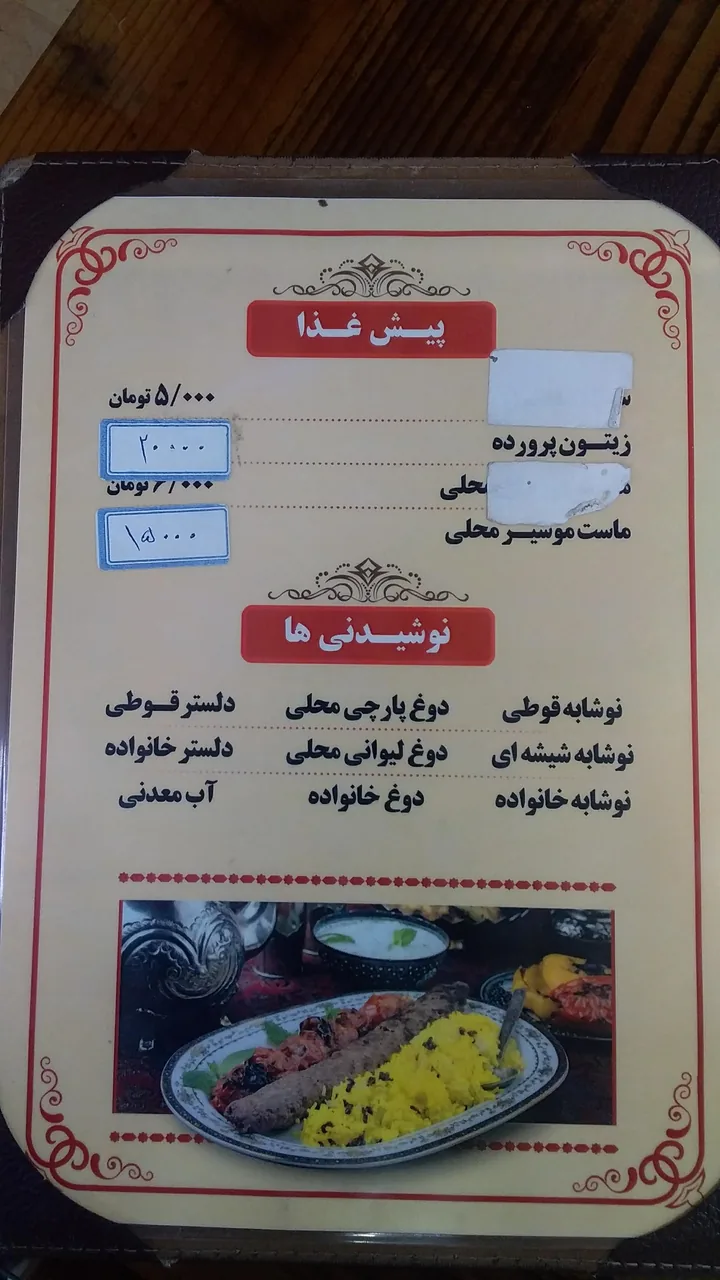 پیش غذا
۵/۰۰۰ تومان
زیتون پرورده ۲۰۰۰۰
محلی ۶/۰۰۰ تومان
ماست موسیر محلی ۱۵۰۰۰
نوشیدنی ها
نوشابه قوطی دوغ پارچی محلی دلستر قوطی
نوشابه شیشه ای دوغ لیوانی محلی دلستر خانواده
نوشابه خانواده دوغ خانواده آب معدنی